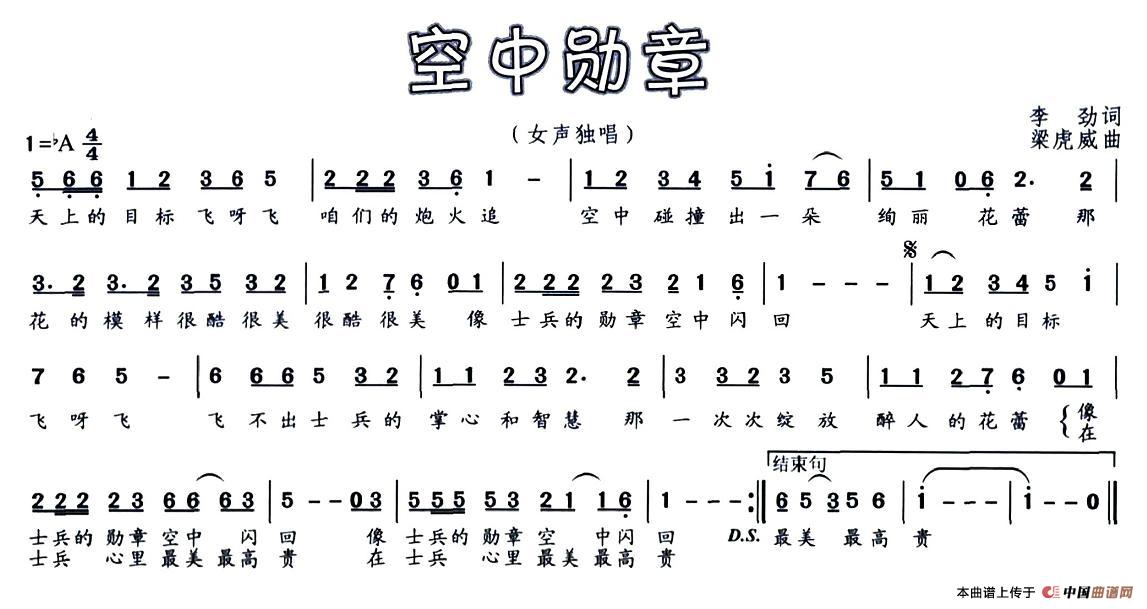 空中勋章
(女声独唱)
李 劲词
梁虎威曲
1=♭A 4/4
5 6 6 1 2 3 6 5 | 2 2 2 3 6 1 - | 1 2 3 4 5 i 7 6 | 5 1 0 6 2. 2 |
天上的目标飞呀飞 咱们的炮火追 空中碰撞出一朵 绚丽 花蕾 那
3. 2 3. 2 3 5 3 2 | 1 2 7 6 0 1 | 2 2 2 2 3 2 1 6 | 1 - - - | 𝄋 1 2 3 4 5 i |
花的模样很酷很美 很酷很美 像 士兵的勋章空中闪回 天上的目标
7 6 5 - | 6 6 6 5 3 2 | 1 1 2 3 2. 2 | 3 3 2 3 5 | 1 1 2 7 6 0 1 |
飞呀飞 飞不出士兵的 掌心和智慧 那 一次次绽放 醉人的花蕾 {像
在
2 2 2 2 3 6 6 6 3 | 5 - - 0 3 | 5 5 5 5 3 2 1 1 6 | 1 - - - :‖ 结束句 6 5 3 5 6 | i - - - | i - - 0 ‖
士兵的勋章空中 闪回 像 士兵的勋章空 中闪回 D.S. 最美 最高贵
士兵 心里最美最高 贵 在士兵 心里最美最高 贵
本曲谱上传于 中国曲谱网